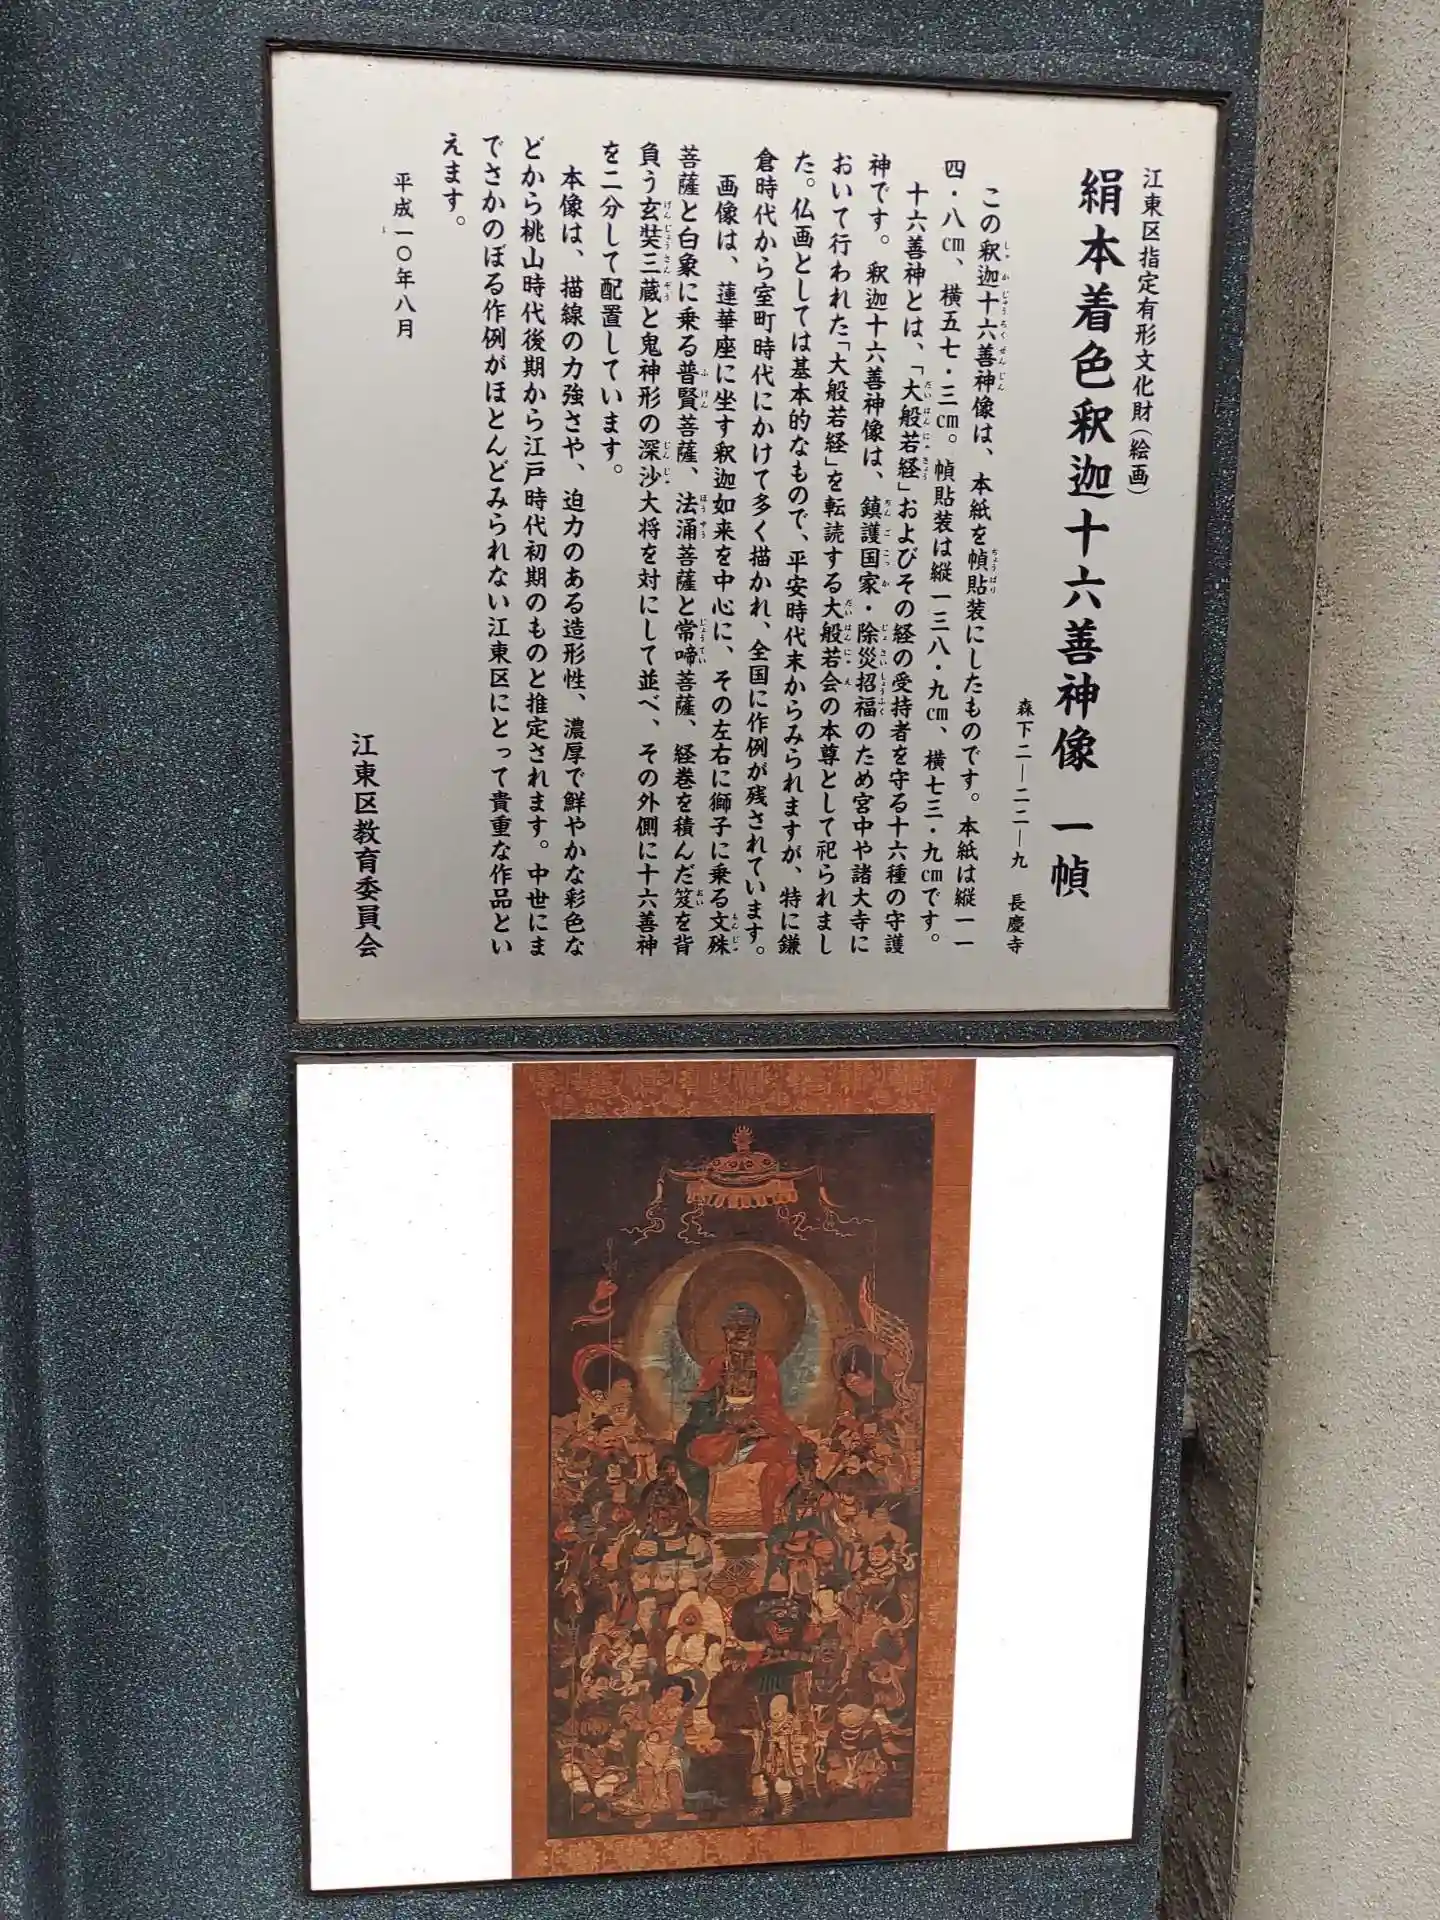 江東区指定有形文化財(絵画)
絹本着色釈迦十六善神像 一幀
森下二―二二―九 長慶寺
この釈迦十六善神像は、本紙を幀貼装にしたものです。本紙は縦一一
四・八㎝、横五七・三㎝。幀貼装は縦一三八・九㎝、横七三・九㎝です。
十六善神とは、「大般若経」およびその経の受持者を守る十六種の守護
神です。釈迦十六善神像は、鎮護国家・除災招福のため宮中や諸大寺に
おいて行われた「大般若経」を転読する大般若会の本尊として祀られまし
た。仏画としては基本的なもので、平安時代末からみられますが、特に鎌
倉時代から室町時代にかけて多く描かれ、全国に作例が残されています。
画像は、蓮華座に坐す釈迦如来を中心に、その左右に獅子に乗る文殊
菩薩と白象に乗る普賢菩薩、法涌菩薩と常啼菩薩、経巻を積んだ笈を背
負う玄奘三蔵と鬼神形の深沙大将を対にして並べ、その外側に十六善神
を二分して配置しています。
本像は、描線の力強さや、迫力のある造形性、濃厚で鮮やかな彩色な
どから桃山時代後期から江戸時代初期のものと推定されます。中世にま
でさかのぼる作例がほとんどみられない江東区にとって貴重な作品とい
えます。
平成一〇年八月
江東区教育委員会